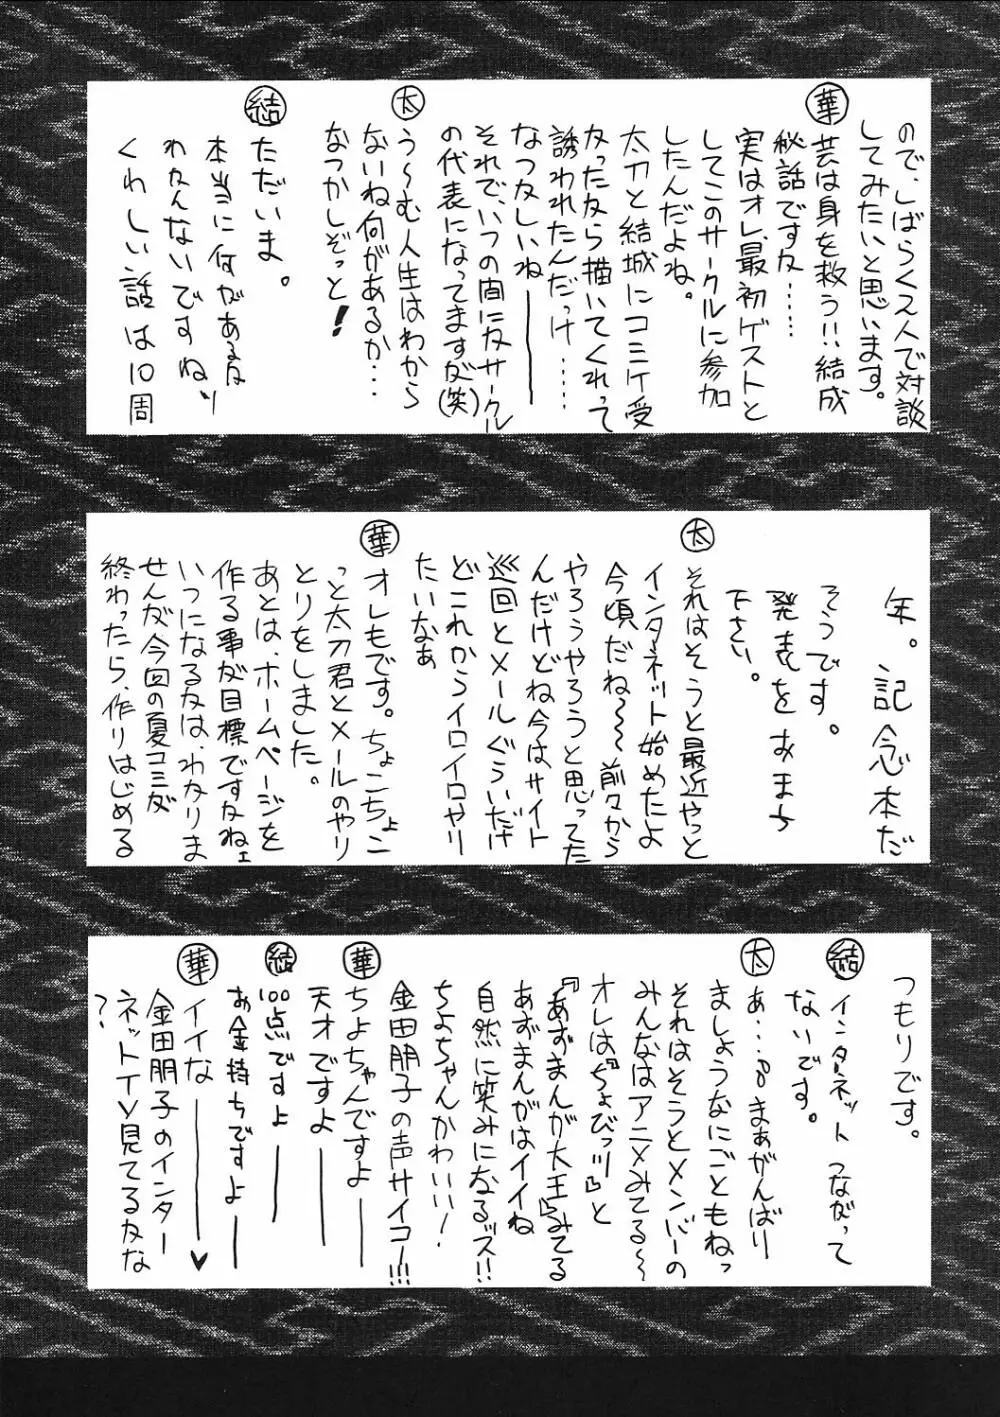 ので、しばらく2人で対談
してみたいと思います。
華 芸は身を救う!!結成
秘話ですな……
実はオレ、最初ゲストと
してこのサークルに参加
したんだよね。
太刀と結城にコミケ受
かったから描いてくれって
誘われたんだっけ……
なつかしいね――
それで、いつの間にかサークル
の代表になってますが(笑)
太 う〜む人生はわから
ないね何があるか…
なつかしぞっと!
結 ただいま。
本当に何があるか
わかんないですね。
くわしい話は10周
年。記念本だ
そうです。
発表をおまち
下さい。
太 それはそうと最近やっと
インタネット始めたよ
今頃だね〜〜前々から
やろうやろうと思ってた
んだけどね今はサイト
巡回とメールぐらいだけ
どこれからイロイロやり
たいなぁ
華 オレもです。ちょこちょこ
っと太刀君とメールのやり
とりをしました。
あとは、ホームページを
作る事が目標ですかねェ
いつになるかは、わかりま
せんが今回の夏コミが
終わったら、作りはじめる
つもりです。
結 インターネットつながって
ないです。
太 あ…。まぁがんばり
ましょうなにごともねっ
それはそうとメンバーの
みんなはアニメみてる〜
オレは『ちょびッツ』と
『あずまんが大王』みてる
あずまんがはイイね
自然に笑みになるッス!!
ちよちゃんかわいい!
金田朋子の声サイコー!!!
華 ちよちゃんですよ――
天才ですよ――
結 100点ですよ――
お金持ちですよ――
華 イイな――♥
金田朋子のインター
ネットTV見てるかな
?